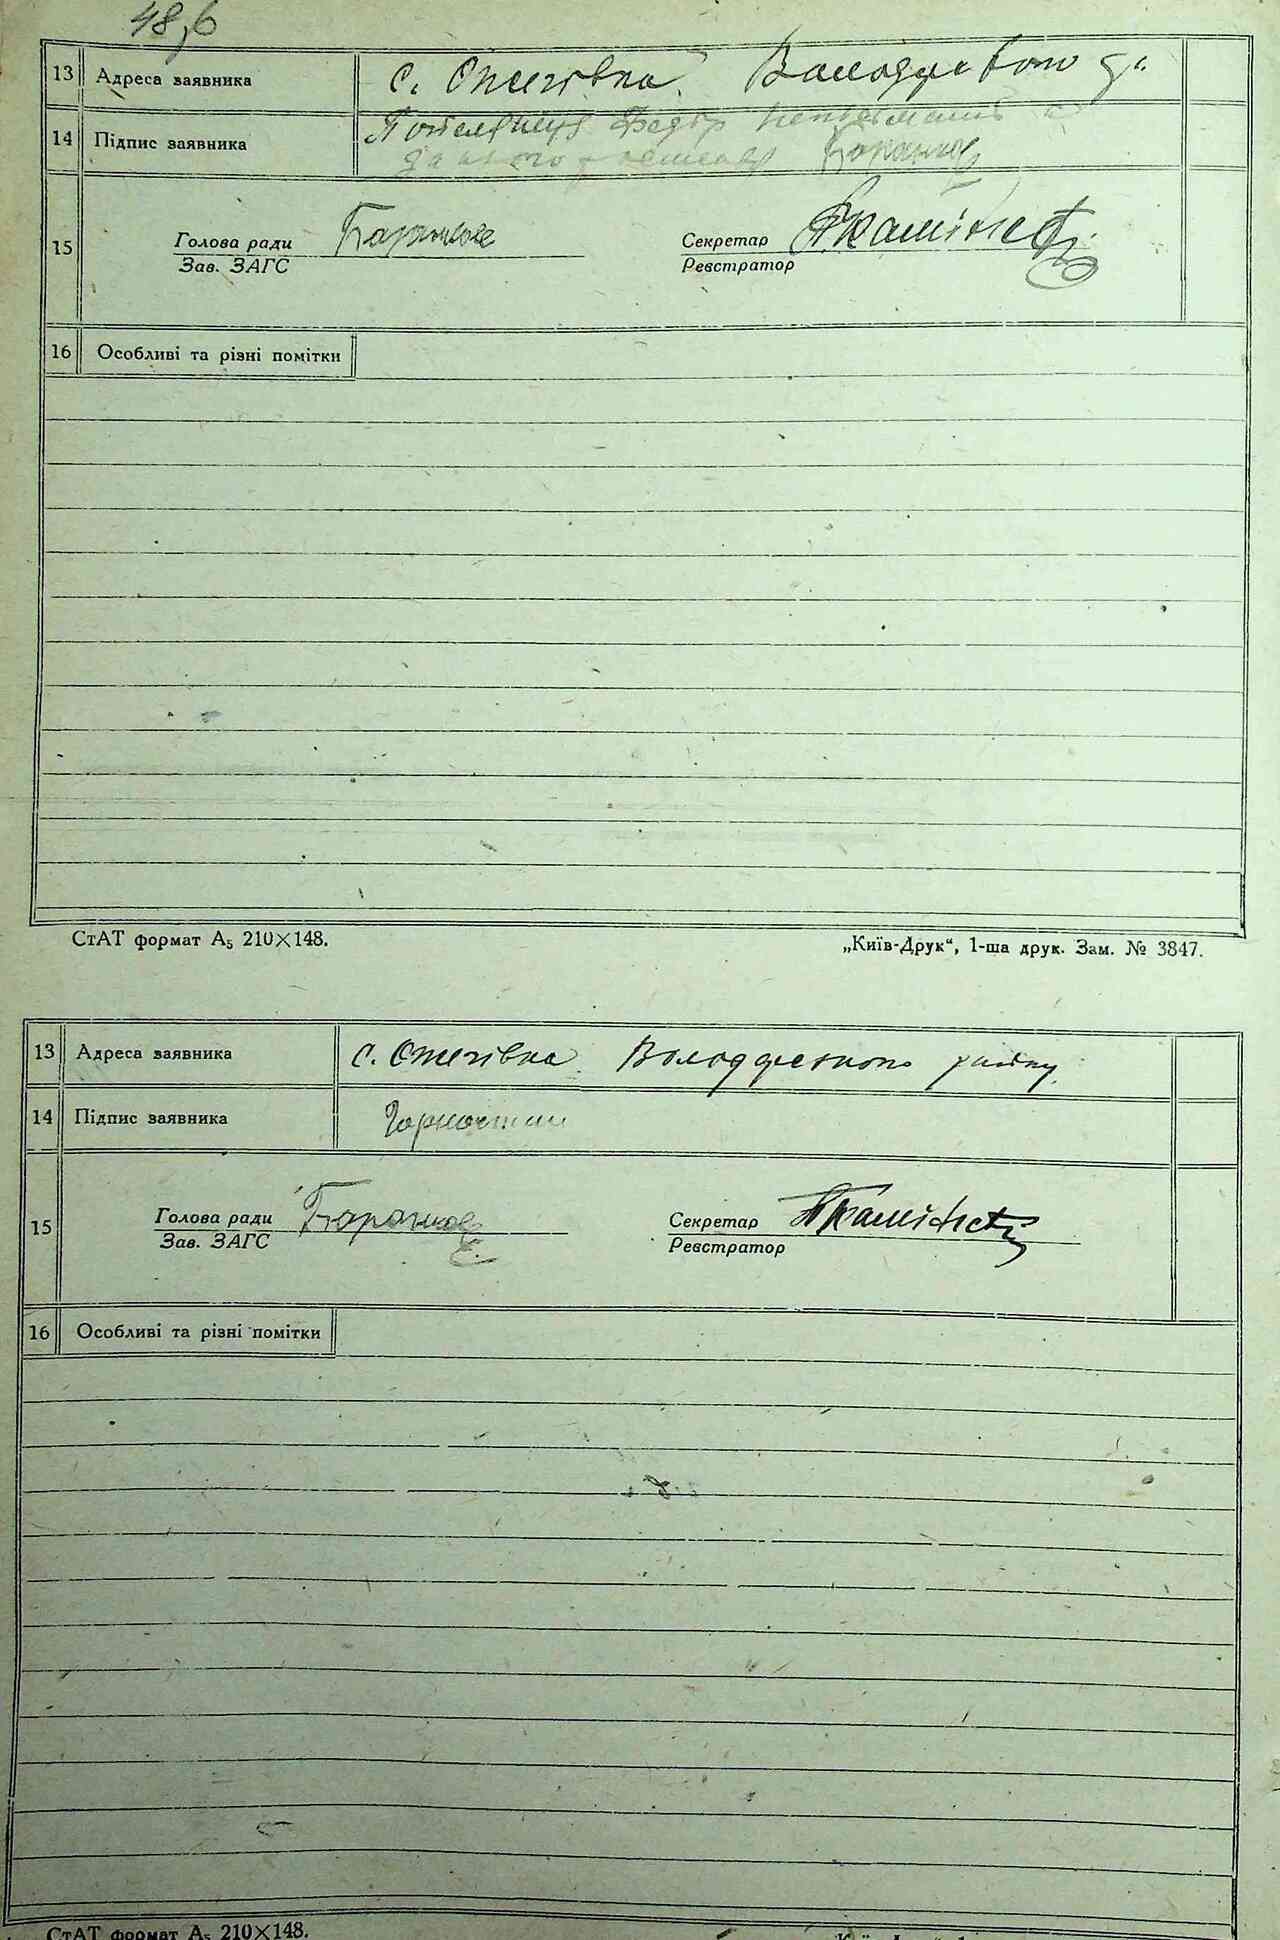 48,6
13 Адреса заявника с. Ожегівка. Володарського
14 Підпис заявника Федір неписьменний
за нього Баранюк
15 Голова ради Баранюк Секретар
Зав. ЗАГС Реєстратор
16 Особливі та різні помітки
СтАТ формат А₅ 210×148. „Київ-Друк“, 1-ша друк. Зам. № 3847.
13 Адреса заявника с. Ожегівка. Володарського району.
14 Підпис заявника
15 Голова ради Баранюк Секретар
Зав. ЗАГС Реєстратор
16 Особливі та різні помітки
СтАТ формат А₅ 210×148.